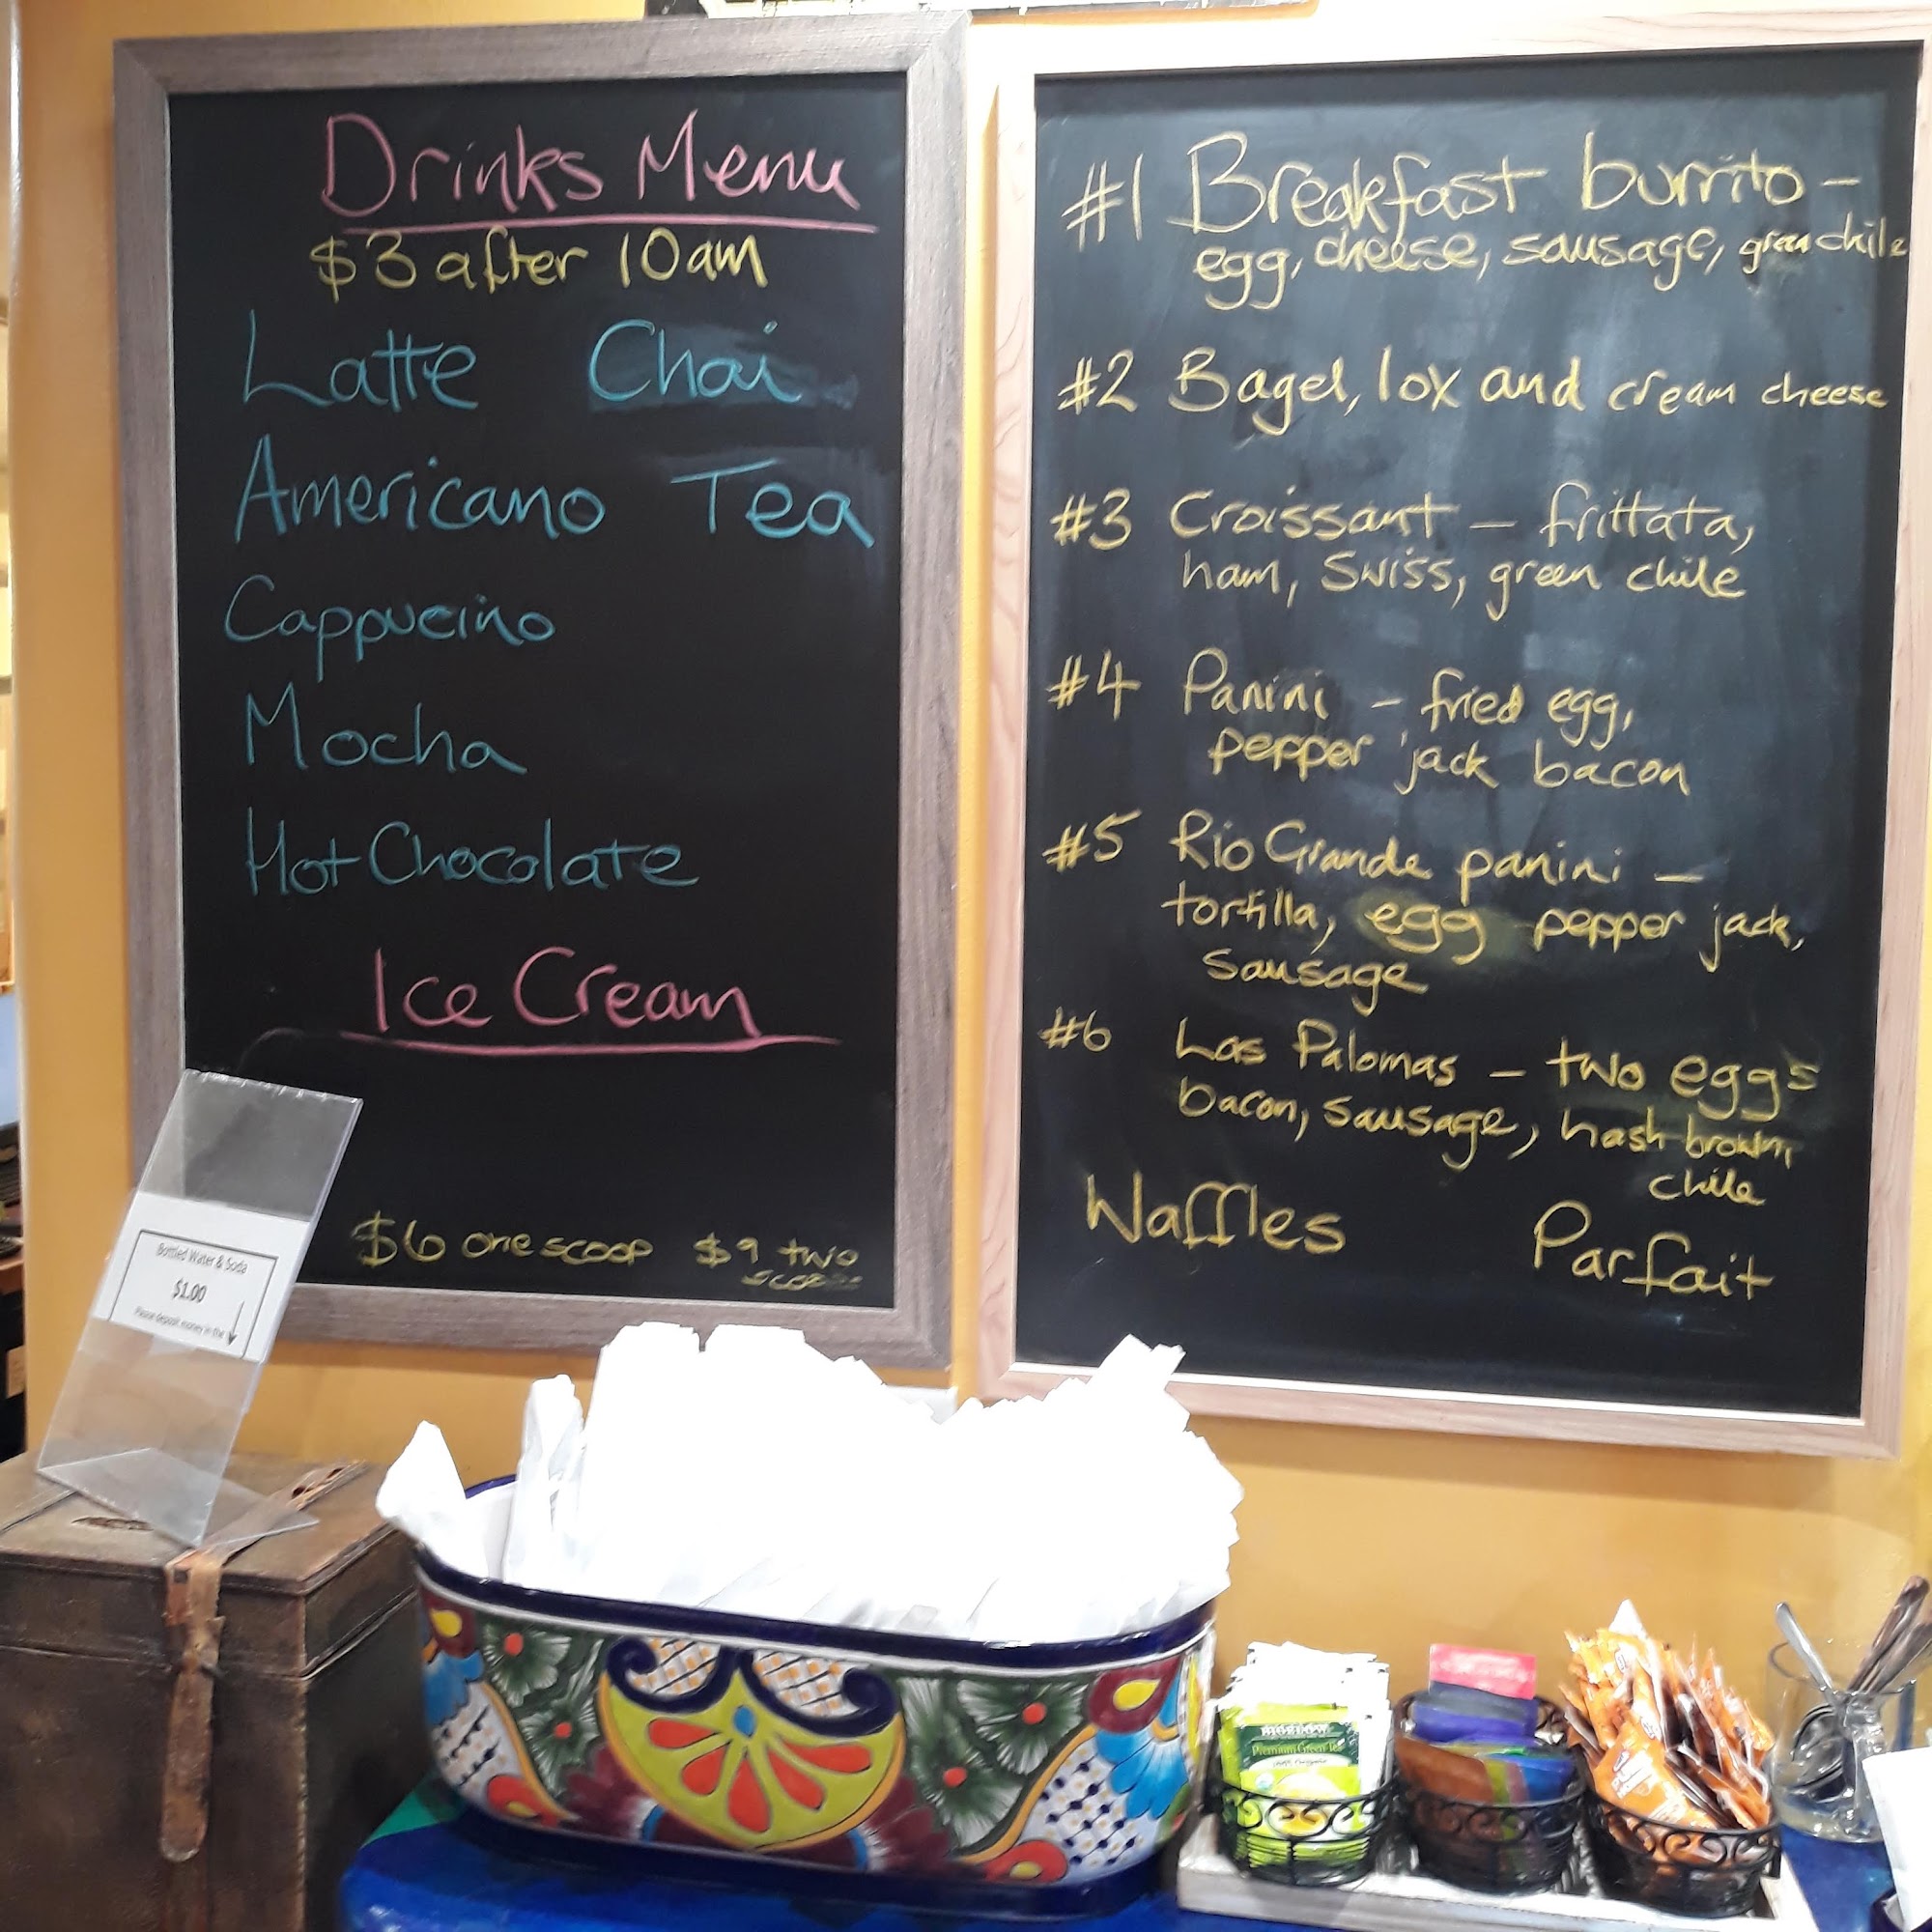 Drinks Menu
$3 after 10am
Latte Chai
Americano Tea
Cappucino
Mocha
Hot Chocolate
Ice Cream
$6 one scoop $9 two
#1 Breakfast burrito -
egg, cheese, sausage, green chile
#2 Bagel, lox and cream cheese
#3 Croissant - frittata,
ham, Swiss, green chile
#4 Panini - fried egg,
pepper jack bacon
#5 Rio Grande panini -
tortilla, egg pepper jack,
sausage
#6 Las Palomas - two eggs
bacon, sausage, hash brown,
chile
Waffles Parfait
Bottled Water & Soda
$1.00
Please deposit money in the
BIGELOW
Premium Green Tea